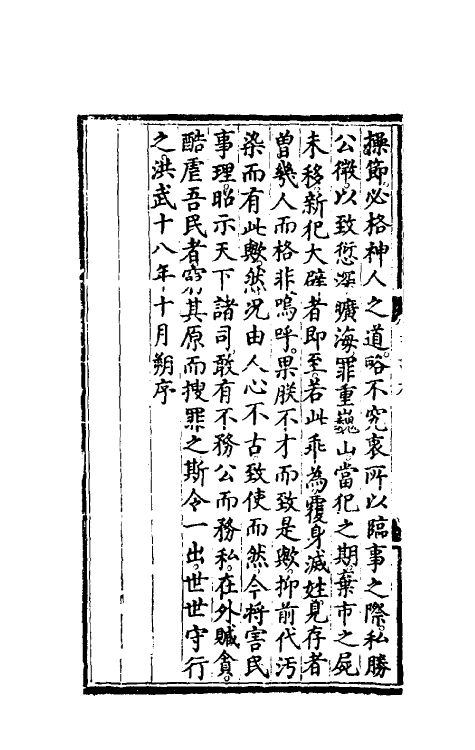 操節必格神人之道略不究衷所以臨事之際私勝
公微以致愆深曠海罪重巍山當犯之期棄市之屍
未移新犯大辟者即至若此乖為覆身滅姓見存者
曾幾人而格非嗚呼果朕不才而致是歟抑前代汚
染而有此歟然况由人心不古致使而然今將害民
事理昭示天下諸司敢有不務公而務私在外贓貪
酷虐吾民者窮其原而搜罪之斯令一出世世守行
之洪武十八年十月朔序